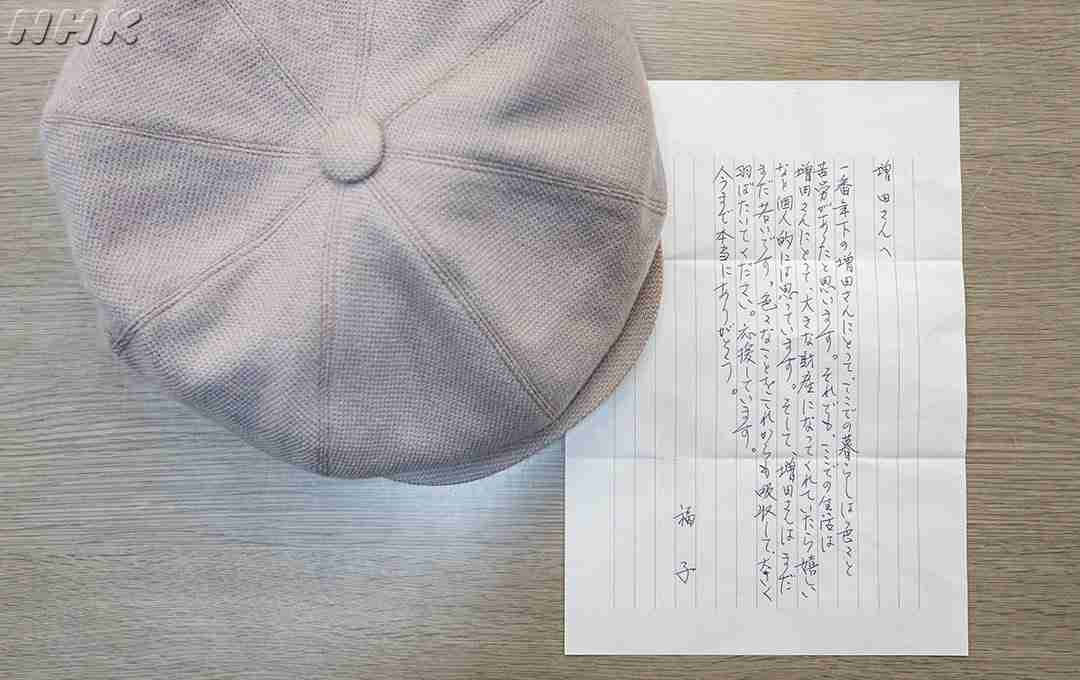 NHK
増田さんへ
一番年下の増田さんにとって、ここでの暮らしは色々と
苦労があったと思います。それでも、ここでの生活は
増田さんにとって、大きな財産になってくれていたら嬉しい
なと個人的には思っています。そして、増田さんはまだ
まだ若いです。色々なことをこれからも吸収して、大きく
羽ばたいてください。応援しています。
今まで本当にありがとう。
福子